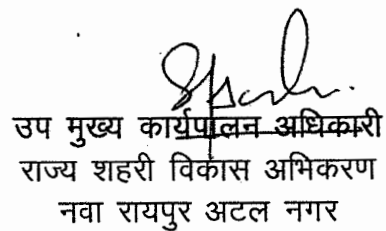 उप मुख्य कार्यपालन अधिकारी
राज्य शहरी विकास अभिकरण
नवा रायपुर अटल नगर